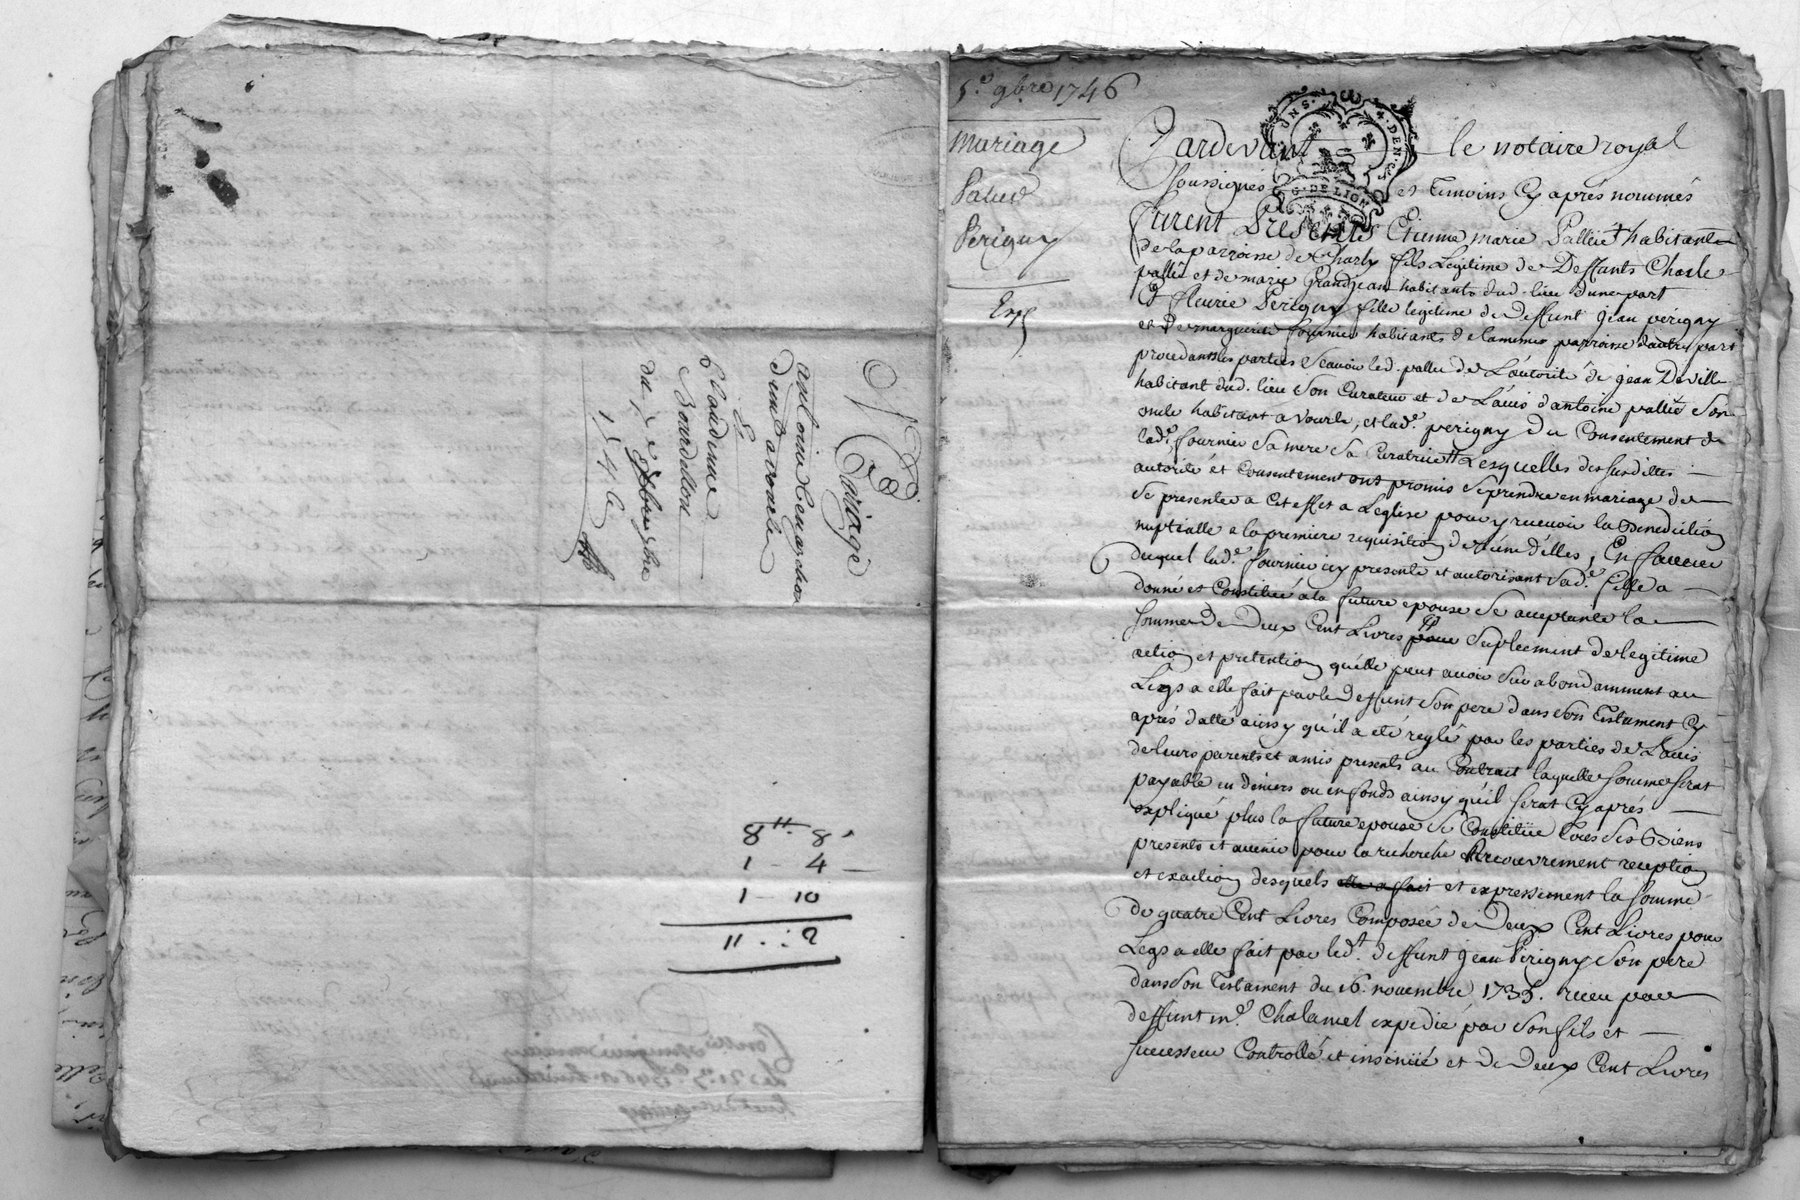 Mariage
antoine
d'une part
Et
Claudine
Bourdellon
du
8ᵗᵗ. 8ˢ
1 - 4 -
1 - 10
11 .: 2
5.e 9bre 1746
Mariage
Palud
Perigny
Exp
Pardevant le notaire royal
soussignés et temoins Cy aprés nommés
furent Présents Etienne marie Palliet habitant
de la parroisse de Charly fils Legitime de Deffunts Charle
pallie et de marie Grandjean habitants dud. lieu d'une part
& fleurie Perigny fille legitime de deffunt jean périgny
et de marguerite fournier habitants de la mesme parroisse d'autre part
procedants les parties Scavoir led. pallie de L'autorité de jean Deville
habitant dud. lieu son Curateur et de L'avis d'antoine pallie son
oncle habitant a vourle, et lad.e perigny du Consentement de
lad.e fournier Sa mere Sa Curatrice Lesquelles des susdittes
autorité et Consentement ont promis se prendre en mariage de
se presenter a Cet effet a L'eglise pour y recevoir la Benediction
nuptialle a la premiere requisition de l'une d'elles, En faveur
duquel lad.e fournier icy presente et autorisant sad.e fille a
donné et Constitué a la future epouse se acceptante la
somme de Deux Cent Livres pour Suplement de legitime
action et pretention qu'elle peut avoir sur abondamment au
Legs a elle fait par le deffunt son pere dans son Testament Cy
aprés datté ainsy qu'il a eté reglé par les parties de L'avis
de leurs parents et amis presents au Contrait laquelle somme serat
payable en deniers ou en fonds ainsy qu'il serat Cy aprés
expliqué plus la future epouse se Constitüe tous ses Biens
presents et avenir pour la recherche Recouvrement reception
et exaction desquels elle a fait et expressement la somme
de quatre Cent Livres Composée de Deux Cent Livres pour
Legs a elle fait par led.t deffunt jean Périgny son pere
dans son Testament du 16. novembre 1735. receu par
deffunt m.e Chalamel expedié par son fils et
successeur Controllé et insinüé et de Deux Cent Livres